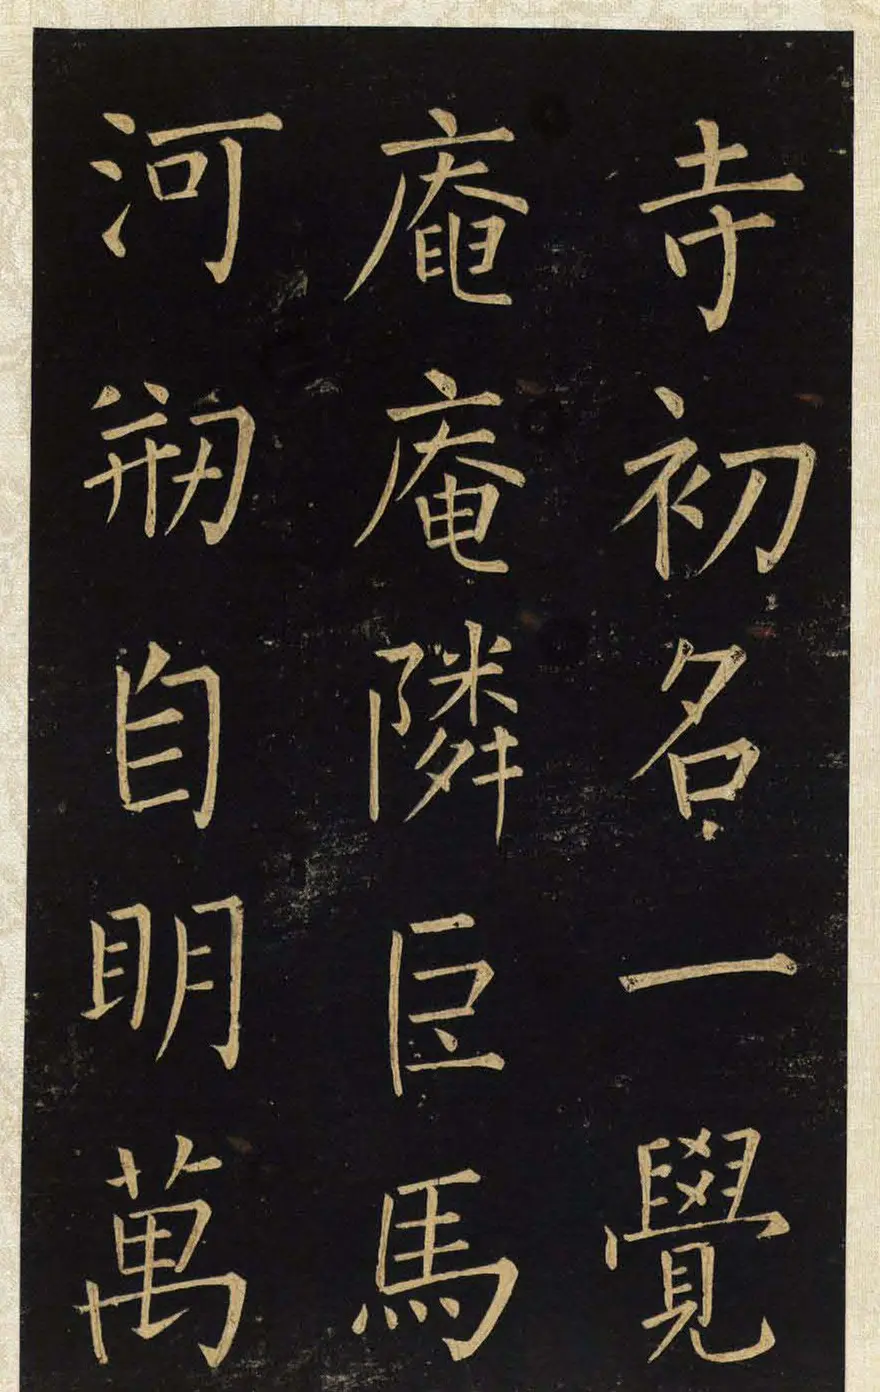 寺初名一覺
庵庵隣臣馬
河剏自明萬